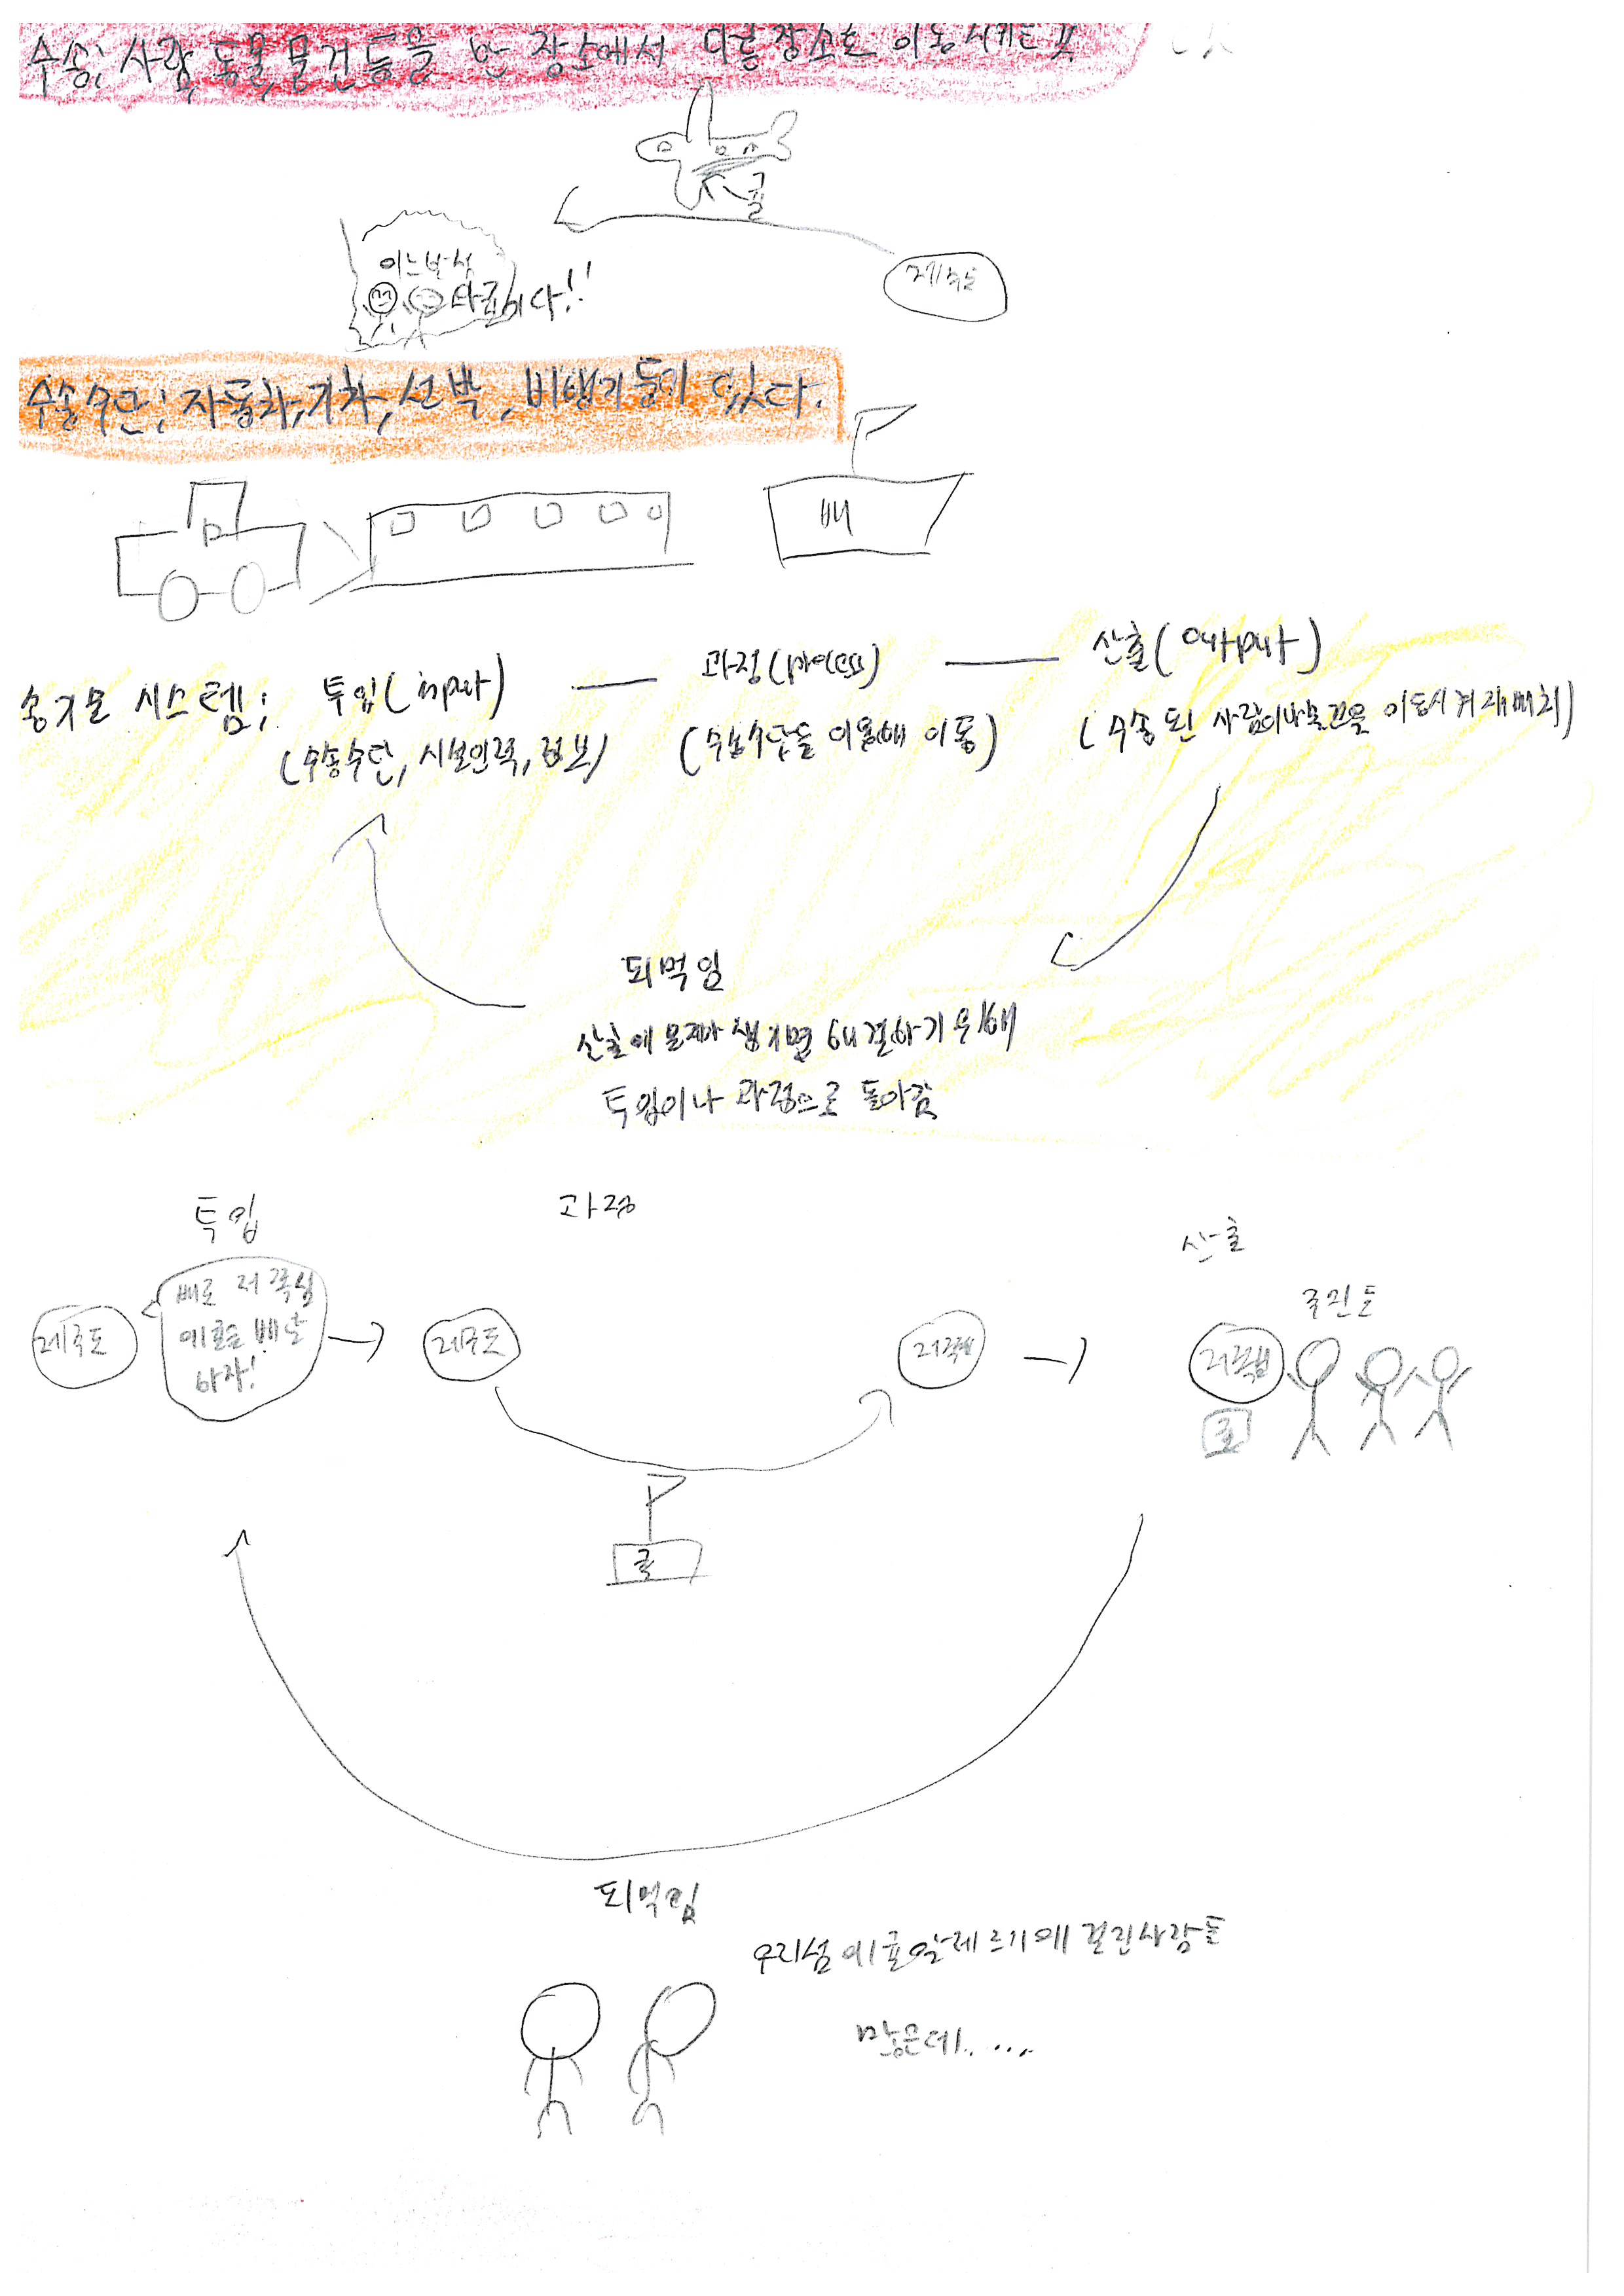 수송; 사람, 동물, 물건 등을 한 장소에서 다른 장소로 이동시키는 것
귤
제주도
어느 무인섬
다!!
수송수단; 자동차, 기차, 선박, 비행기 등이 있다.
배
시스템; 투입(input) — 과정(process) — 산출(output)
(수송수단, 시설인력, 정보) (수송수단을 이용해 이동) (수송된 사람이나 물건을 이동시켜 재배치)
되먹임
산출에 문제가 생기면 해결하기 위해
투입이나 과정으로 돌아감
투입 과정 산출
제주도 배로 저쪽섬 제주도 저쪽섬 저쪽섬 주민들
에 귤을 배달
하자!
귤
귤
되먹임
우리섬에 귤알레르기에 걸린사람들
많은데......